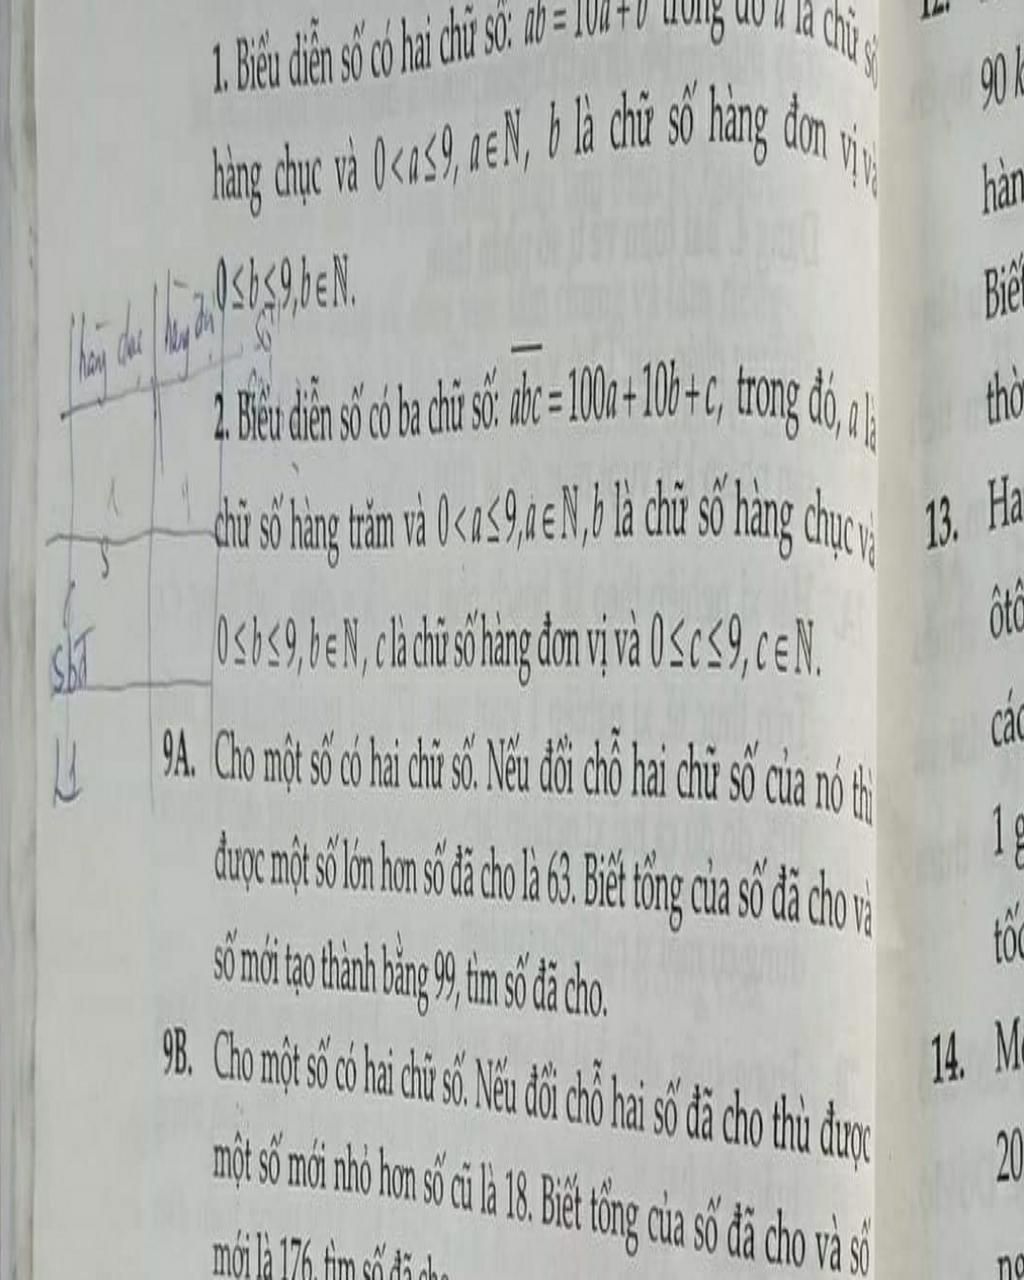 1. Biểu diễn số có hai chữ số: ab = 10a + b trong đó a là chữ số
hàng chục và 0<a≤9, a∈N, b là chữ số hàng đơn vị và
0≤b≤9,b∈N.
hàng chục hàng đv số
2. Biểu diễn số có ba chữ số: \overline{abc} = 100a + 10b + c, trong đó, a là
chữ số hàng trăm và 0<a≤9,a∈N,b là chữ số hàng chục và
0≤b≤9,b∈N, c là chữ số hàng đơn vị và 0≤c≤9, c∈N.
sbđ
9A. Cho một số có hai chữ số. Nếu đổi chỗ hai chữ số của nó thì
được một số lớn hơn số đã cho là 63. Biết tổng của số đã cho và
số mới tạo thành bằng 99, tìm số đã cho.
9B. Cho một số có hai chữ số. Nếu đổi chỗ hai số đã cho thù được
một số mới nhỏ hơn số cũ là 18. Biết tổng của số đã cho và số
mới là 176, tìm số đã cho
12.
90 k
hàn
Biết
thờ
13. Ha
ôtô
các
1 g
tốc
14. Mộ
20